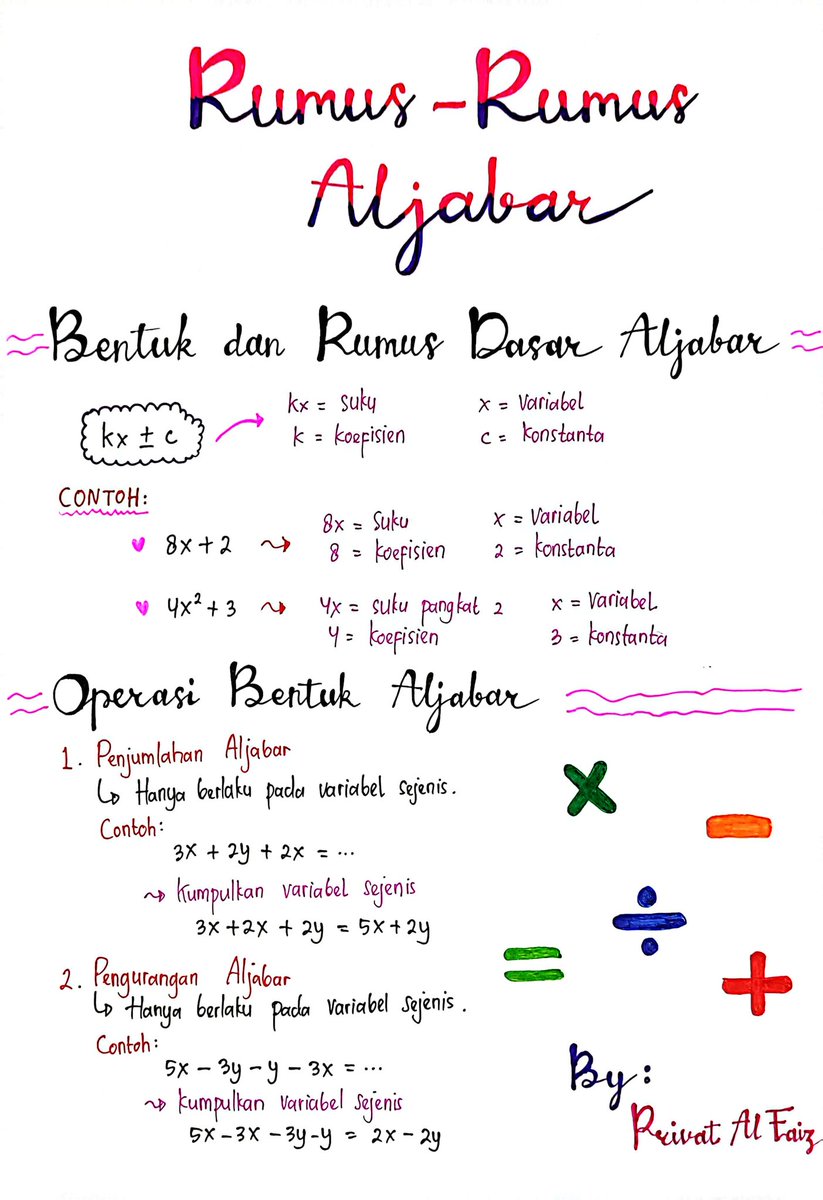 Rumus-Rumus
Aljabar
Bentuk dan Rumus Dasar Aljabar
kx ± c
kx = suku
x = variabel
k = koefisien
c = konstanta
CONTOH:
8x + 2
8x = suku
x = variabel
8 = koefisien
2 = konstanta
4x² + 3
4x = suku pangkat 2
x = variabel
4 = koefisien
3 = konstanta
Operasi Bentuk Aljabar
1. Penjumlahan Aljabar
↳ Hanya berlaku pada variabel sejenis.
Contoh:
3x + 2y + 2x = ...
⤳ kumpulkan variabel sejenis
3x + 2x + 2y = 5x + 2y
2. Pengurangan Aljabar
↳ Hanya berlaku pada variabel sejenis.
Contoh:
5x - 3y - y - 3x = ...
⤳ kumpulkan variabel sejenis
5x - 3x - 3y - y = 2x - 2y
×
-
÷
=
+
By:
Privat Al Faiz